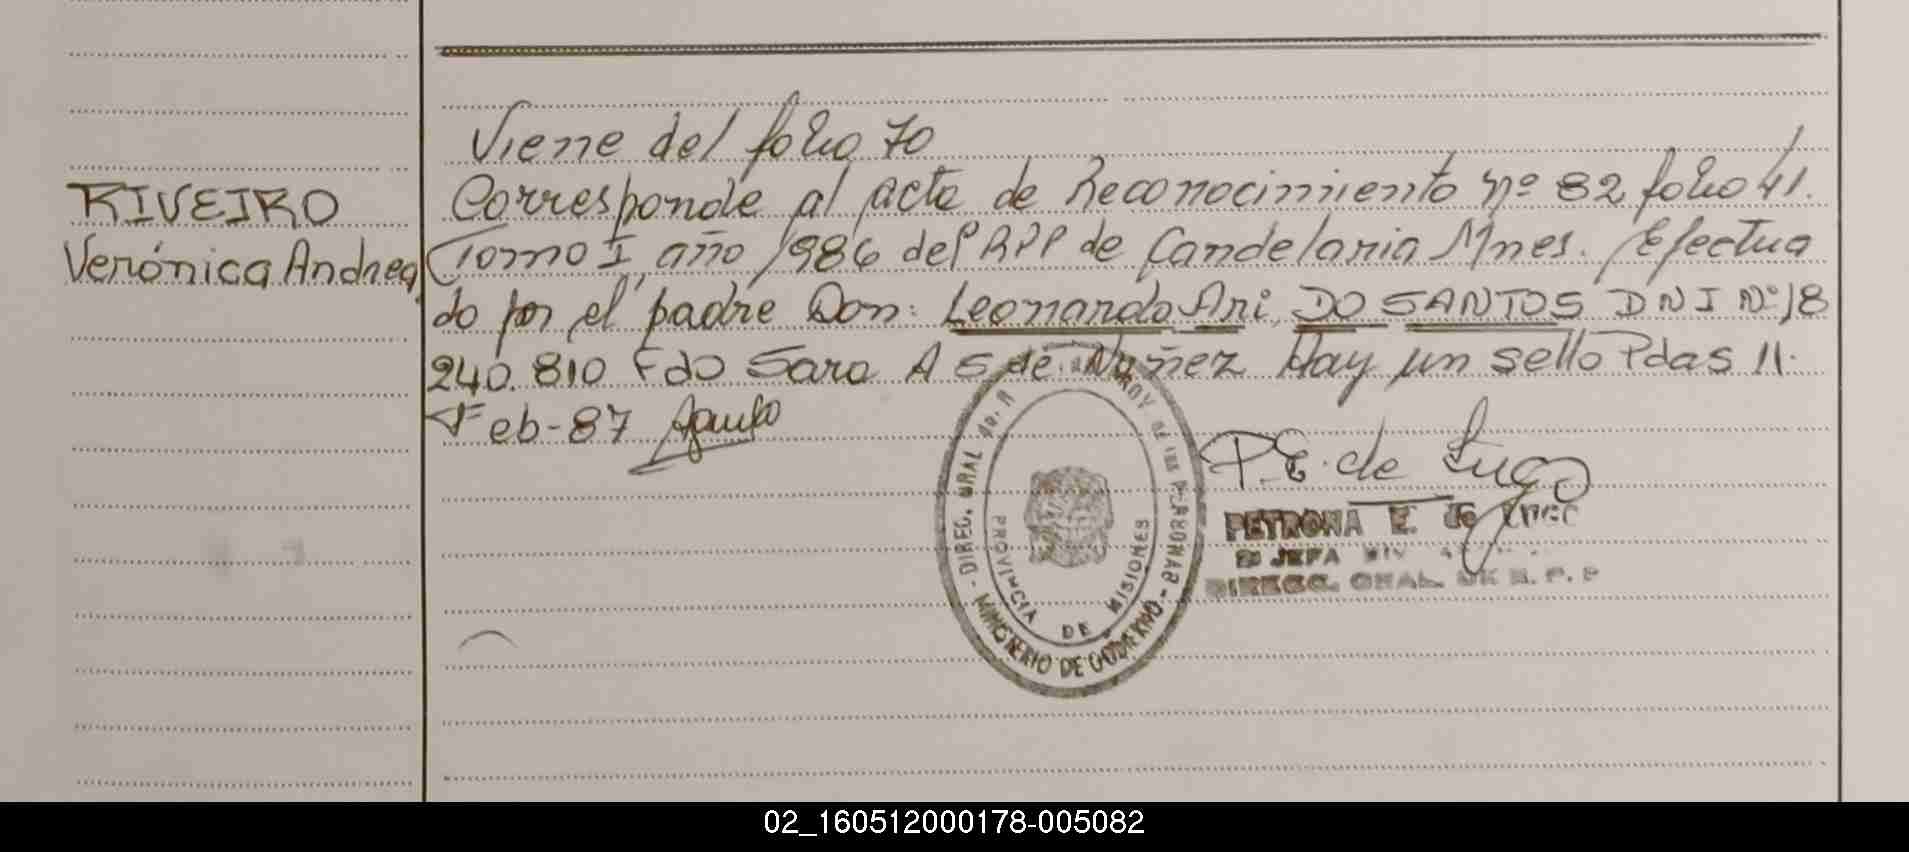 Viene del folio 70
RIVEIRO
Verónica Andrea
Corresponde al acta de Reconocimiento Nº 82 folio 41.
Tomo I año 1986 del RPP de Candelaria Mnes. Efectua
do por el padre Don: Leonardo Ari DO SANTOS DNI Nº 18
240.810 Fdo Sara A S de Nuñez Hay un sello Pdas 11.
Feb-87
P.E. de Lugo
PETRONA E. de LUGO
JEFA DIV
DIRECC. GRAL. DE R. P. P
DIREC. GRAL
DE LAS PERSONAS
MINISTERIO DE GOBIERNO
PROVINCIA DE MISIONES
02_160512000178-005082